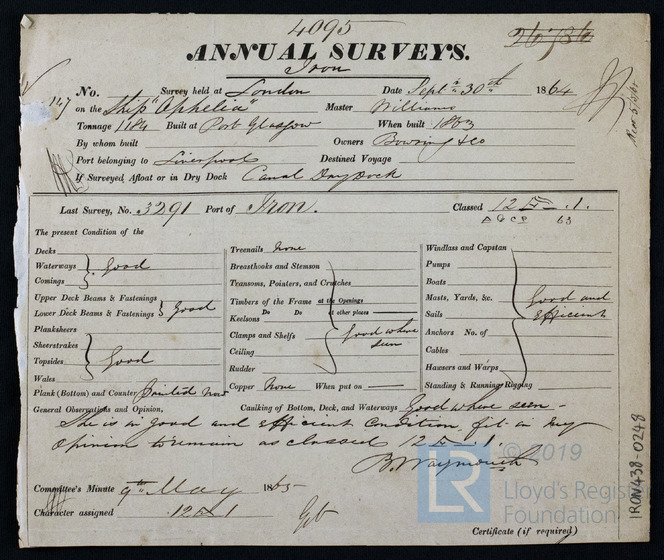 4095
26736
ANNUAL SURVEYS.
Iron
No. Survey held at London Date Sept 30th 1864
147 on the Ship "Ophelia" Master Williams
Tonnage 1184 Built at Port Glasgow When built 1863
By whom built Owners Bowring & Co
Port belonging to Liverpool Destined Voyage
If Surveyed Afloat or in Dry Dock Canal Dry Dock
Last Survey, No. 3291 Port of Iron. Classed 12 A 1.
A & CP 63
The present Condition of the
Decks
Waterways } Good
Comings
Upper Deck Beams & Fastenings
Lower Deck Beams & Fastenings } Good
Planksheers
Sheerstrakes
Topsides } Good
Wales
Plank (Bottom) and Counter Painted Now
Treenails None
Breasthooks and Stemson
Transoms, Pointers, and Crutches
Timbers of the Frame at the Openings
Do Do at other places
Keelsons
Clamps and Shelfs } Good where seen
Ceiling
Rudder
Copper None When put on
Windlass and Capstan
Pumps
Boats
Masts, Yards, &c. } Good and
Sails efficient
Anchors No. of
Cables
Hawsers and Warps
Standing & Running Rigging
General Observations and Opinion, Caulking of Bottom, Deck, and Waterways Good where seen -
She is in good and efficient Condition, fit in my
Opinion to remain as classed 12 A 1.
B. Waymouth
Committee's Minute 9th May 1865
Character assigned 12 A 1
Certificate (if required)
IRON438-0248
© 2019
LR
Lloyd's Register
Foundation